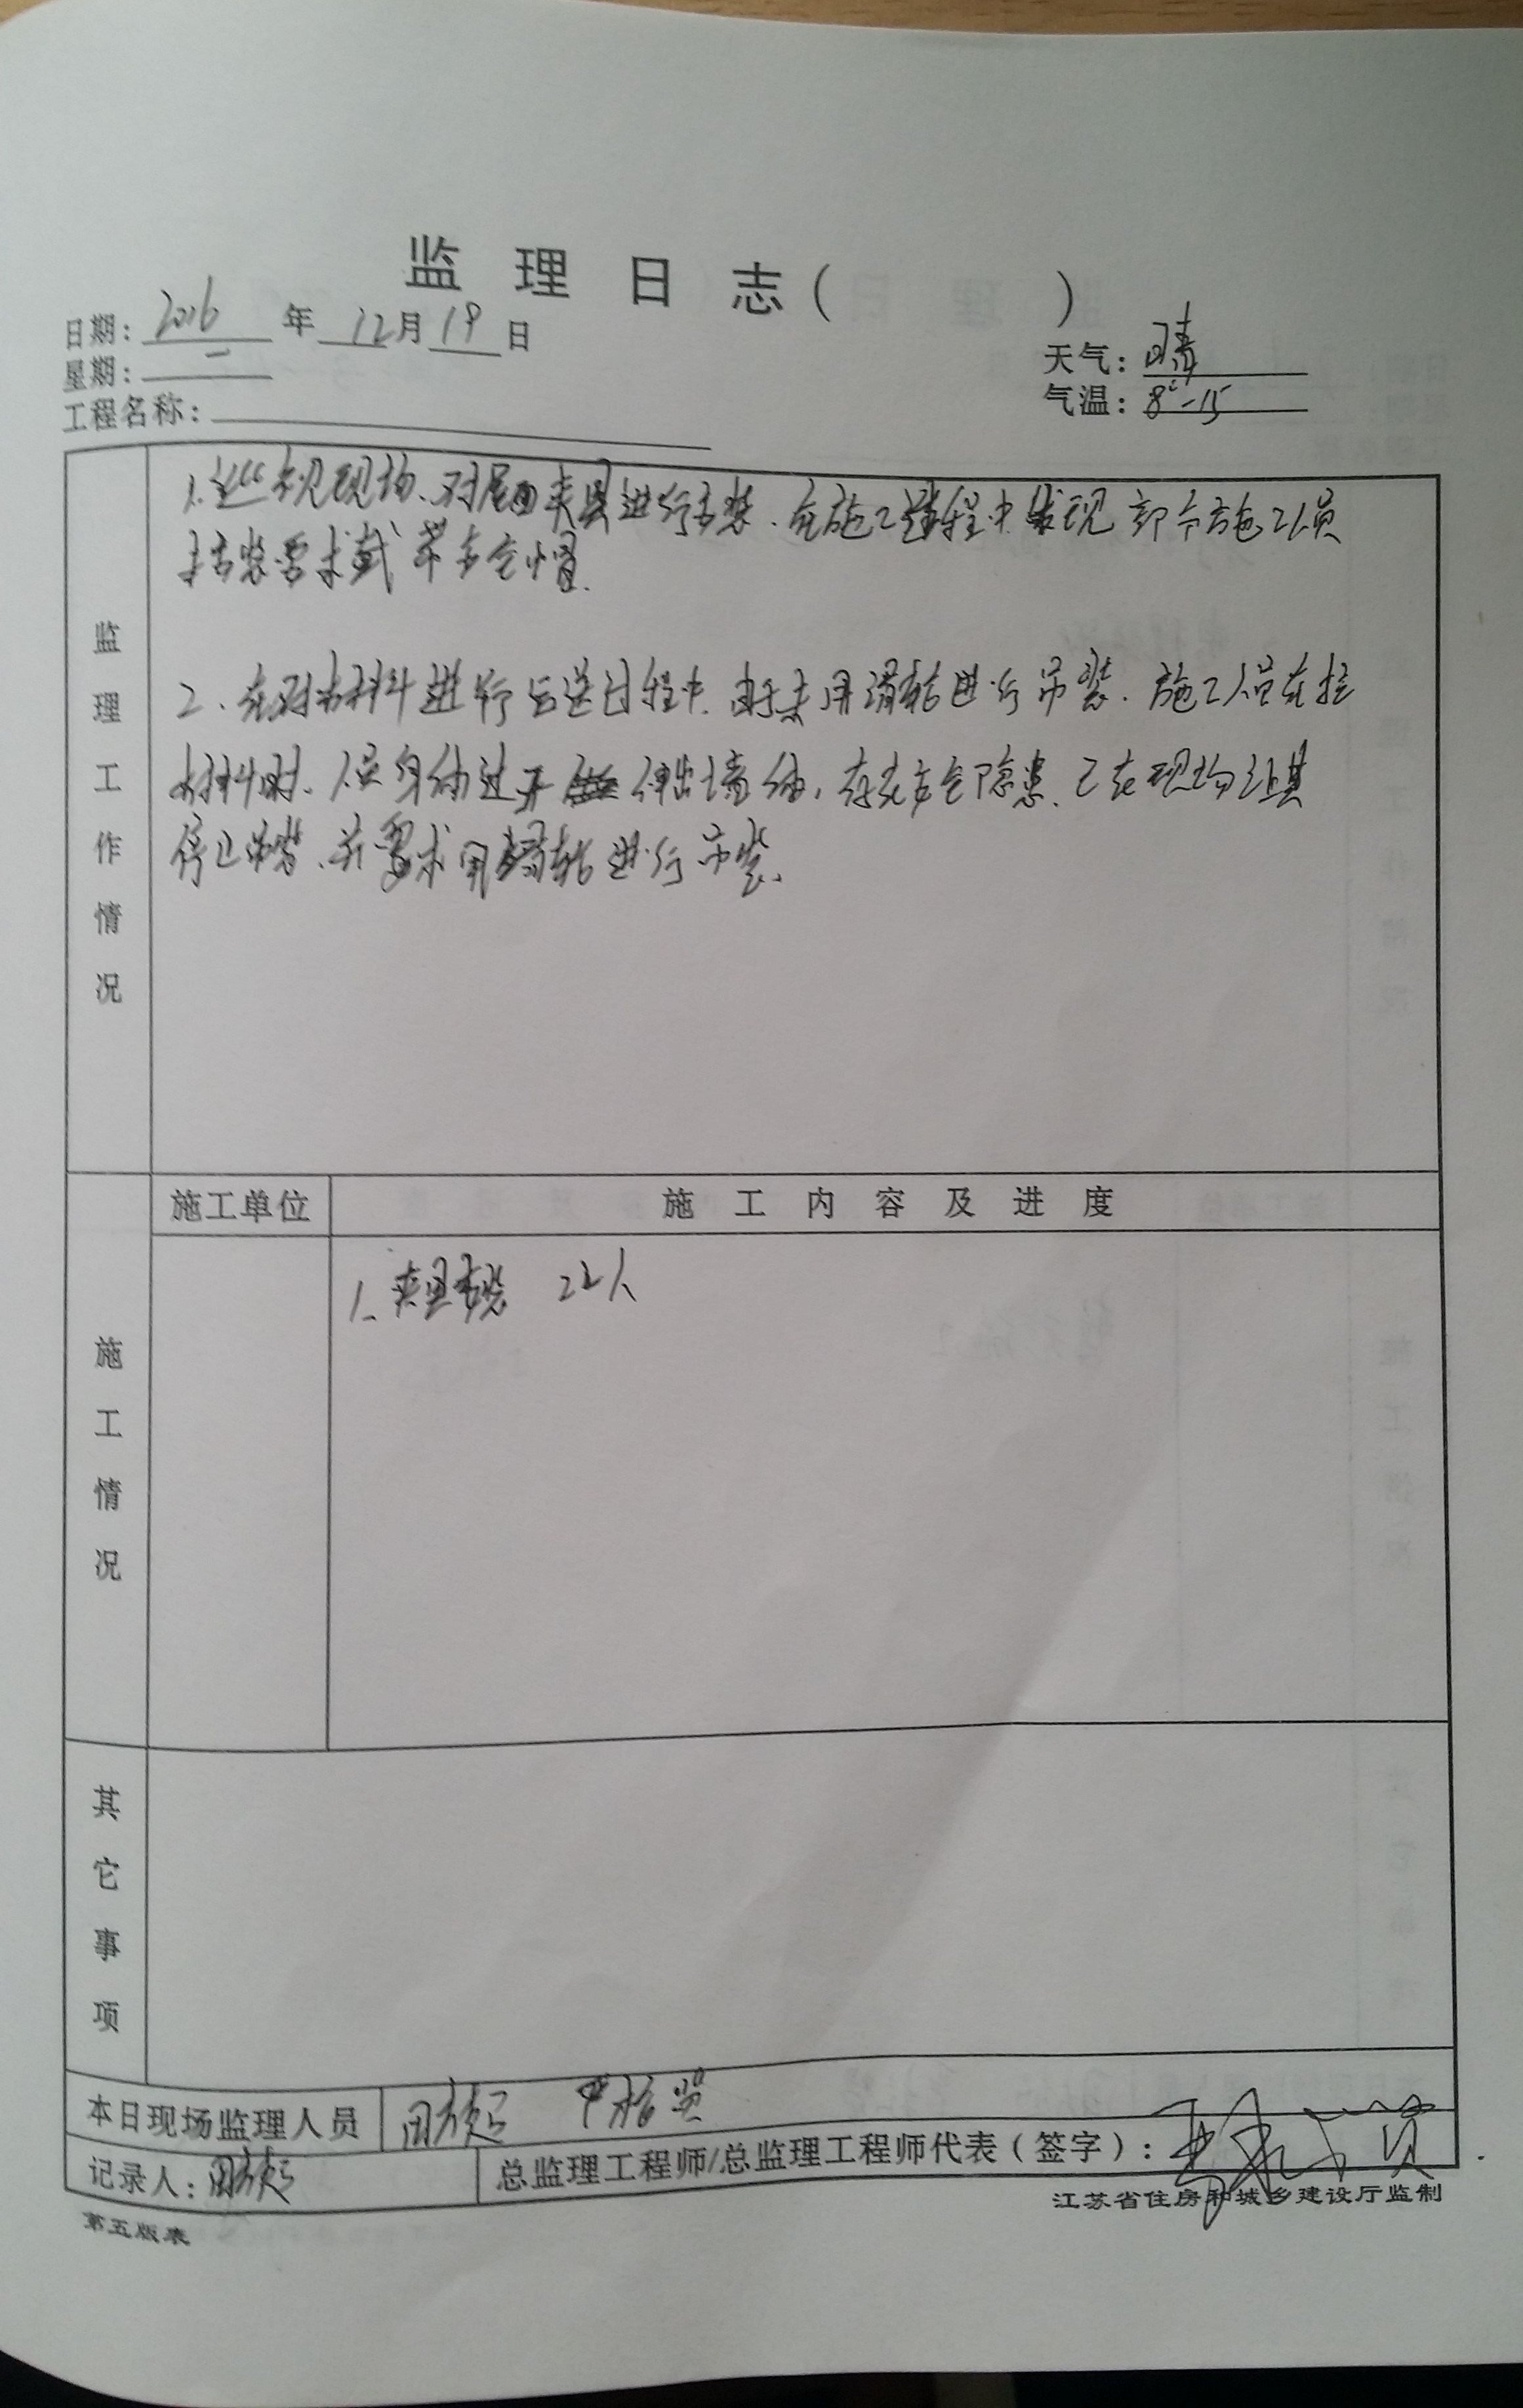 监理日志(　　　)
日期: 2016 年 12月 19 日
星期:
天气: 晴
工程名称:
气温: 8°-15
监理工作情况
1.巡视现场、对屋面夹具进行安装、在施工过程中发现部分施工人员
未安装要求戴带安全帽.
2、在对材料进行运送过程中.由于未用滑轮进行吊装.施工人员在拉
材料时、人员身体过于伸出墙体,存在安全隐患.已在现场让其
停止吊装、并要求用滑轮进行吊装、
施工情况
施工单位　施工内容及进度
1、夹具安装 22人
其它事项
本日现场监理人员
记录人:
总监理工程师/总监理工程师代表(签字):
江苏省住房和城乡建设厅监制
第五版表